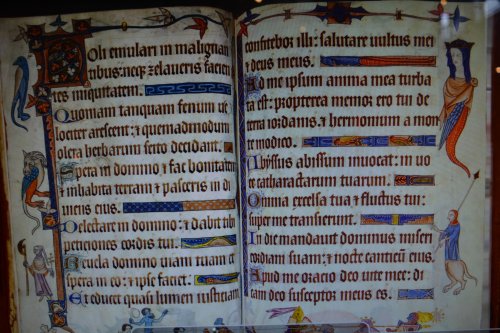 Noli emulari in malignan
tibus: neqz zelaueris facien
tes iniquitatem.
Quoniam tanquam fenum ue
lociter arescent: & quemadmodum
olera herbarum decident.
Spera in domino & fac bonitatem
inhabita terram & pasceris in di
eius.
Delectare in domino: & dabit tibi
peticiones cordis tui.
Reuela domino uiam tuam et
spera in eo: & ipse faciet.
Et educet quasi lumen iusticiam
confitebor illi: salutare uultus mei
& deus meus.
Ad me ipsum anima mea turba
ta est: propterea memor ero tui de
terra iordanis & hermonium a mon
te modico.
Abyssus abissum inuocat: in uo
ce catharactarum tuarum.
Omnia excelsa tua & fluctus tui:
super me transierunt.
In die mandauit dominus miseri
cordiam suam: & nocte canticum eius.
Apud me oracio deo uite mee: di
cam deo susceptor meus es.